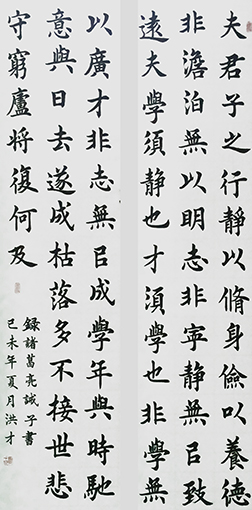 夫君子之行静以脩身儉以養德
非澹泊無以明志非寧静無㠯致
遠夫學須静也才須學也非學無
以廣才非志無㠯成學年與時馳
意與日去遂成枯落多不接世悲
守窮廬將復何及
錄諸葛亮誡子書
己未年夏月洪才